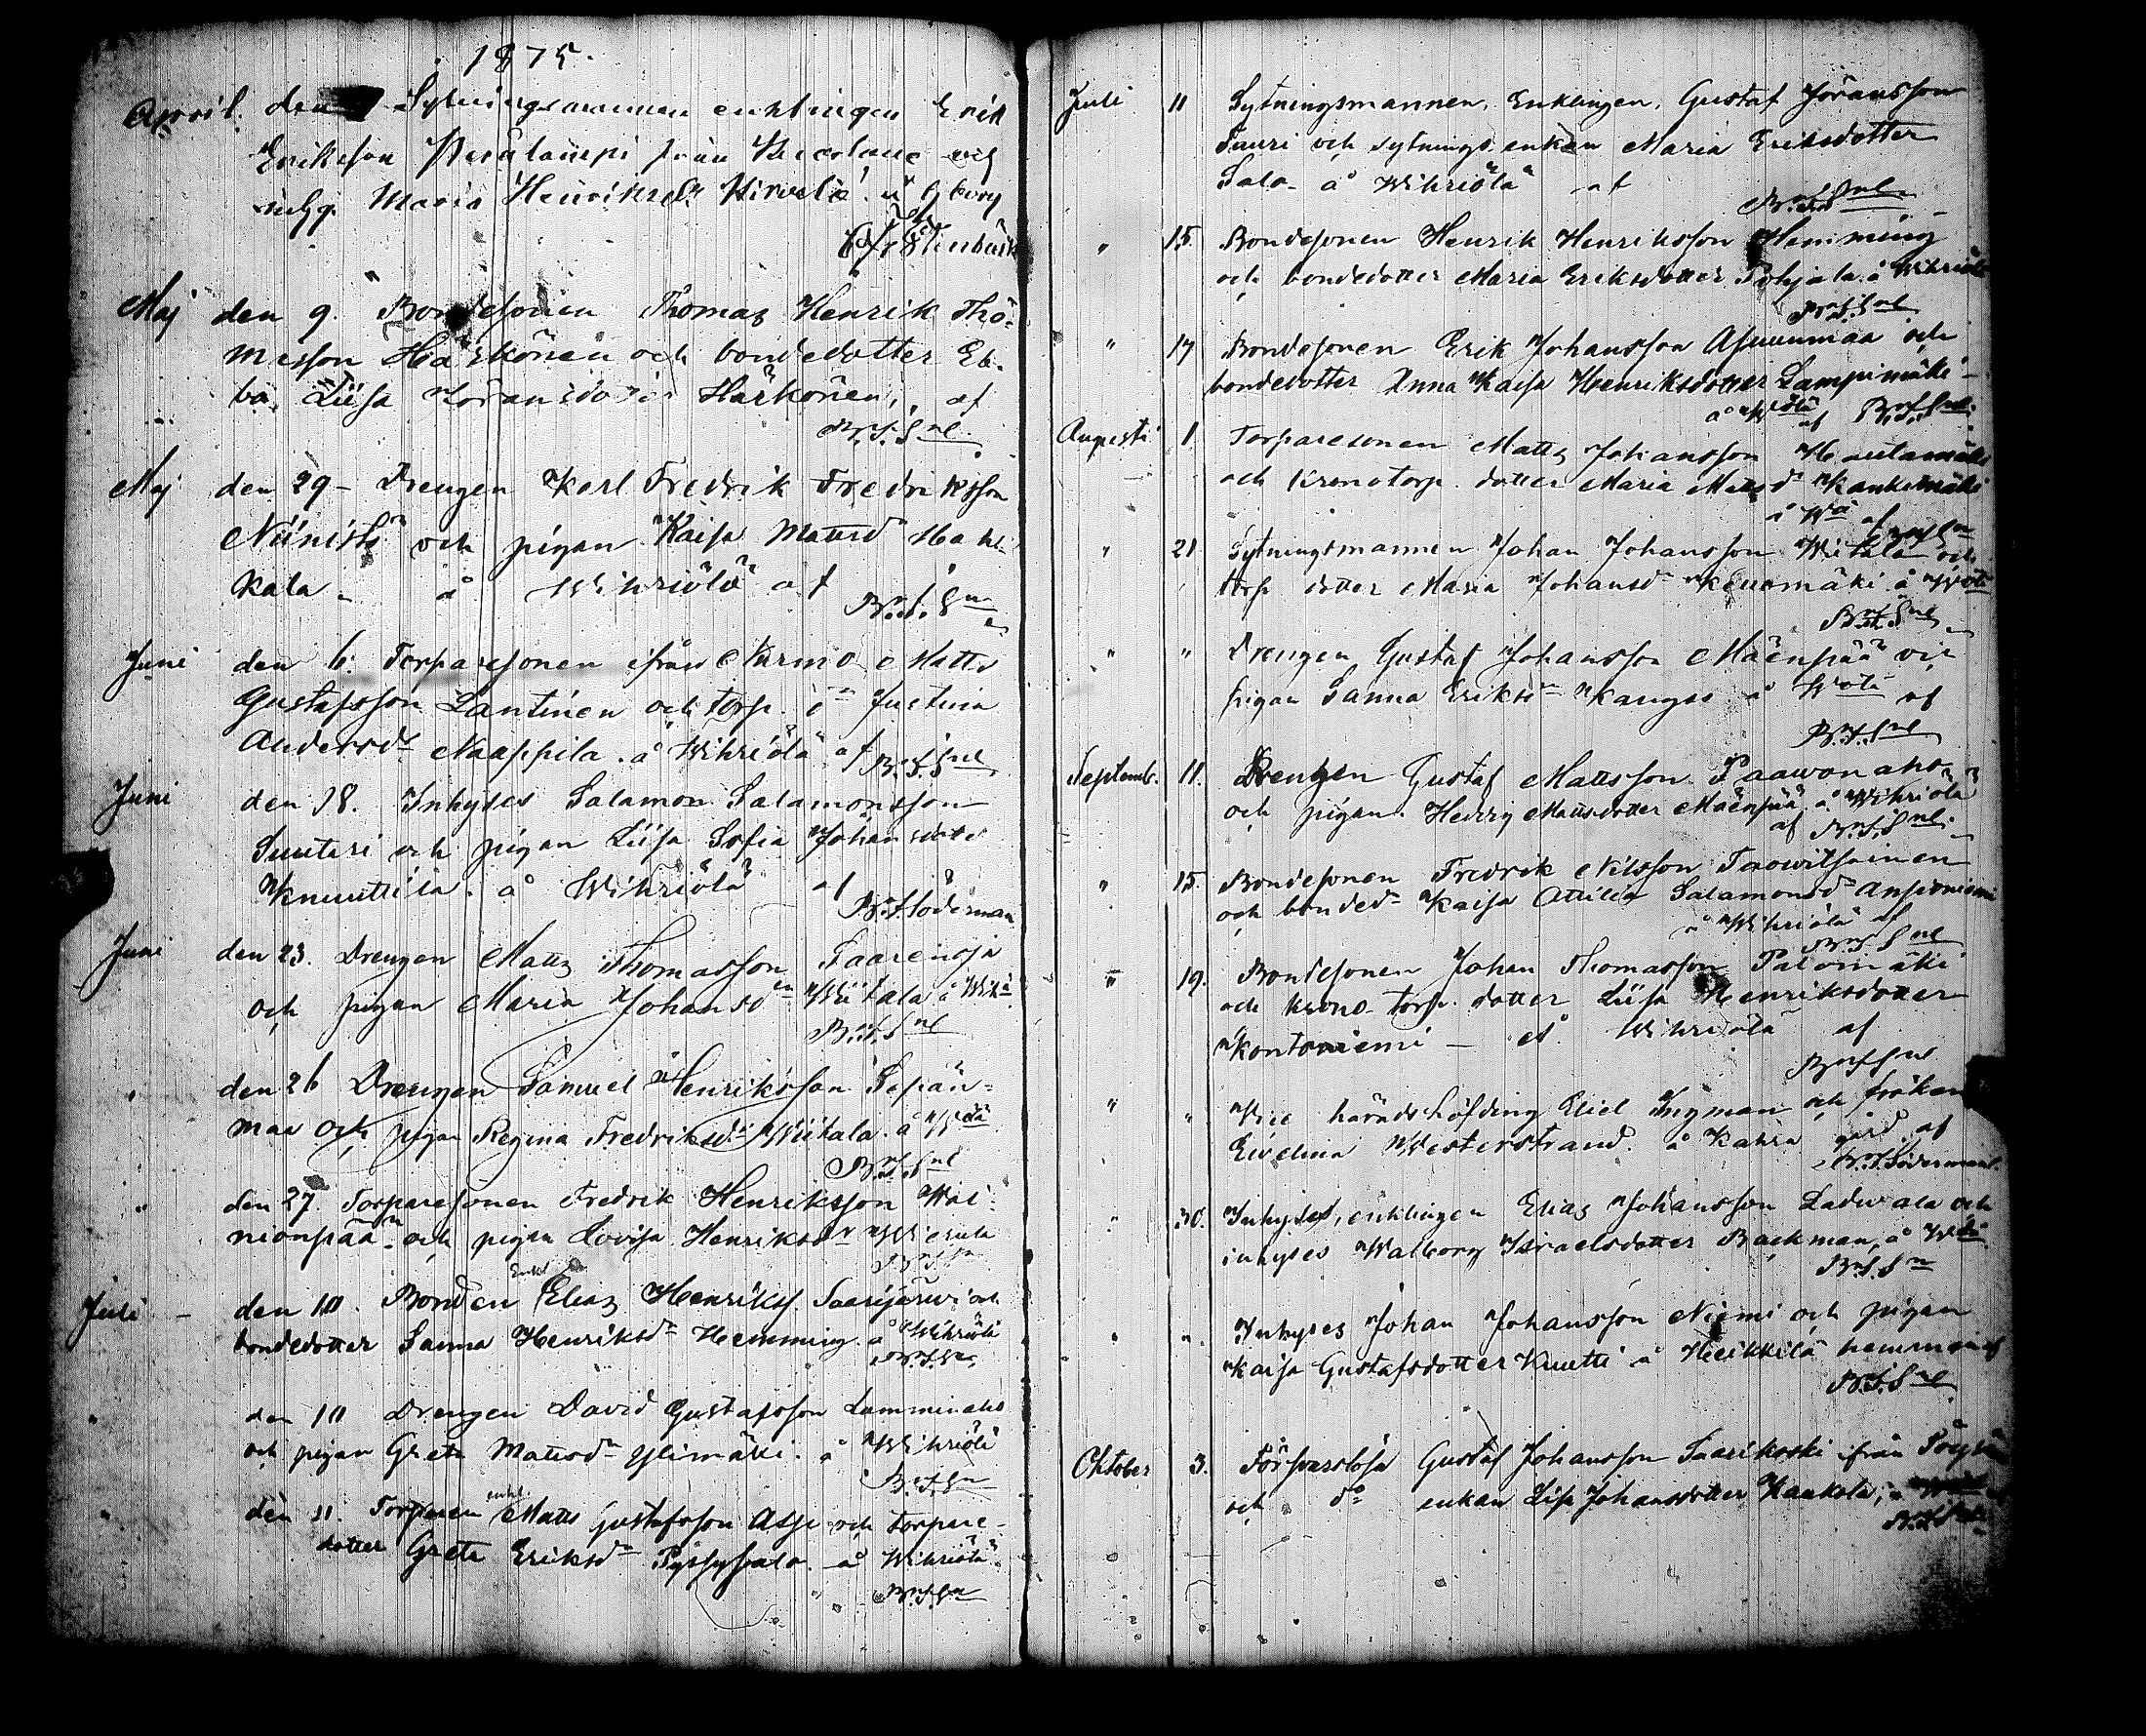 1875.
April. den Sytningsmannen enklingen Erik
Eriksson från och
Maria Henriksdr
Maj den 9. Bondesonen Thomas Henrik Tho-
masson Härkönen och bondedotter Eb-
ba Liisa Göransdotter Härkönen, af
B.T.S.
Maj den 29 - Drengen Karl Fredrik Fredriksson
Niinistö och pigan Kaisa Mattsd Hau
kala - å Wihriälä af
B.T.S.
Juni den 6. Torparesonen ifrån Nurmo Matts
Gustafsson Lantinen och torp. dr Justina
Andersdr Naappila. å Wihriälä af B.T.S.
Juni den 18. Inhyses Salamon Salamonsson
Suutari och pigan Liisa Sofia Johansdotr
Knuuttila. å Wihriälä af
B.T. Söderman
Juni den 23. Drengen Matts Thomasson Saarensja
och pigan Maria Johansdr Wiitala å Wihä
B.T.S.
" den 26 Drengen Samuel Henriksson Sepän-
maa och pigan Regina Fredriksdr Wiitala. å Wälä
B.T.S.
" den 27. Torparesonen Fredrik Henriksson Wai-
nionpää och pigan Lovisa Henriksdr
B.T.S.
Enkl
Juli - den 10. Bonden Elias Henrikss. Saarijärwi och
bondedotter Sanna Henriksdr Hemming. å Wihriälä
B.T.S.
" den 10 Drengen David Gustafsson Lamminaho
och pigan Greta Mattsdr Ylimäki. å Wihriälä
B.T.S.
enkl.
" den 11. Torparen Matts Gustafsson Asp och torpare-
dotter Greta Eriksdr Pyssysalo. å Wihriälä.
B.T.S.
Juli 11 Sytningsmannen, Enklingen, Gustaf Göransson
Tauri och sytnings enkan Maria Eriksdotter
Salo - å Wihriälä af
B.T.S.
" 15. Bondesonen Henrik Henriksson Hemming
och bondedotter Maria Eriksdotter Pohjala. å Wihriälä
B.T.S.
" 17 Bondesonen Erik Johansson Asunmaa och
bondedotter Anna Kaisa Henriksdotter Lampimäki -
å Wälä af B.T.S.
Augusti 1 Torparesonen Matts Johansson Hautamäki
och Kronotorp. dotter Maria Mattsdr Kankimäki
å Wä af
" 21 Sytningsmannen Johan Johansson Wiitala och
torp dotter Maria Johansdr Keuomäki. å Wälä
B.T.S.
" " Drengen Gustaf Johansson Mäenpää och
pigan Sanna Eriksdr Kangas å Wälä af
B.T.S.
Septemb. 11. Drengen Gustaf Mattsson Paawonaho
och pigan Hedvig Mattsdotter Mäenpää. å Wihriälä
af B.T.S.
" 15. Bondesonen Fredrik Nilsson Taowitsainen
och bonded Kaisa Attilia Salamonsdr
å Wihriälä af
B.T.S.
" 19. Bondesonen Johan Thomasson Palomäki
och krono torp. dotter Liisa Henriksdotter
Kontoniemi - å Wihriälä af
B.T.S.
" " Vice häradshöfding Eliel Ingman och fröken
Eivelina Westerstrand. å Karra gård. af
B.T. Söderman
" 30. Inhyses, enklingen Elias Johansson Laduwala och
inhyses Walborg Israelsdotter Backman, å Wälä
B.T.S.
" " Inhyses Johan Johansson Niemi och pigan
Kaisa Gustafsdotter Knutti å Heikkilä hemman af
B.T.S.
Oktober 3. Försvarslösa Gustaf Johansson Saarikoski ifrån Töysä
och do enkan Lisa Johansdotter Kaukola,
B.T.S.